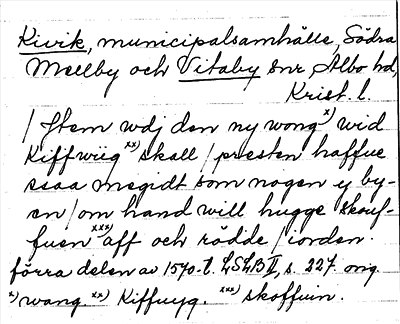 Kivik, municipalsamhälle, Södra
Mellby och Vitaby snr, Albo hd,
Krist. l.
/ Item wdj den ny wong x) wid
Kiffwiig xx) skall / presten haffue
saa megidt som nogen y by-
en / om hand will hugge skouf-
fuen xxx) aff och rödde / iorden.
förra delen av 1570-t. LSLB II, s. 227. orig.
x) wang. xx) Kiffuyg. xxx) skoffuin.